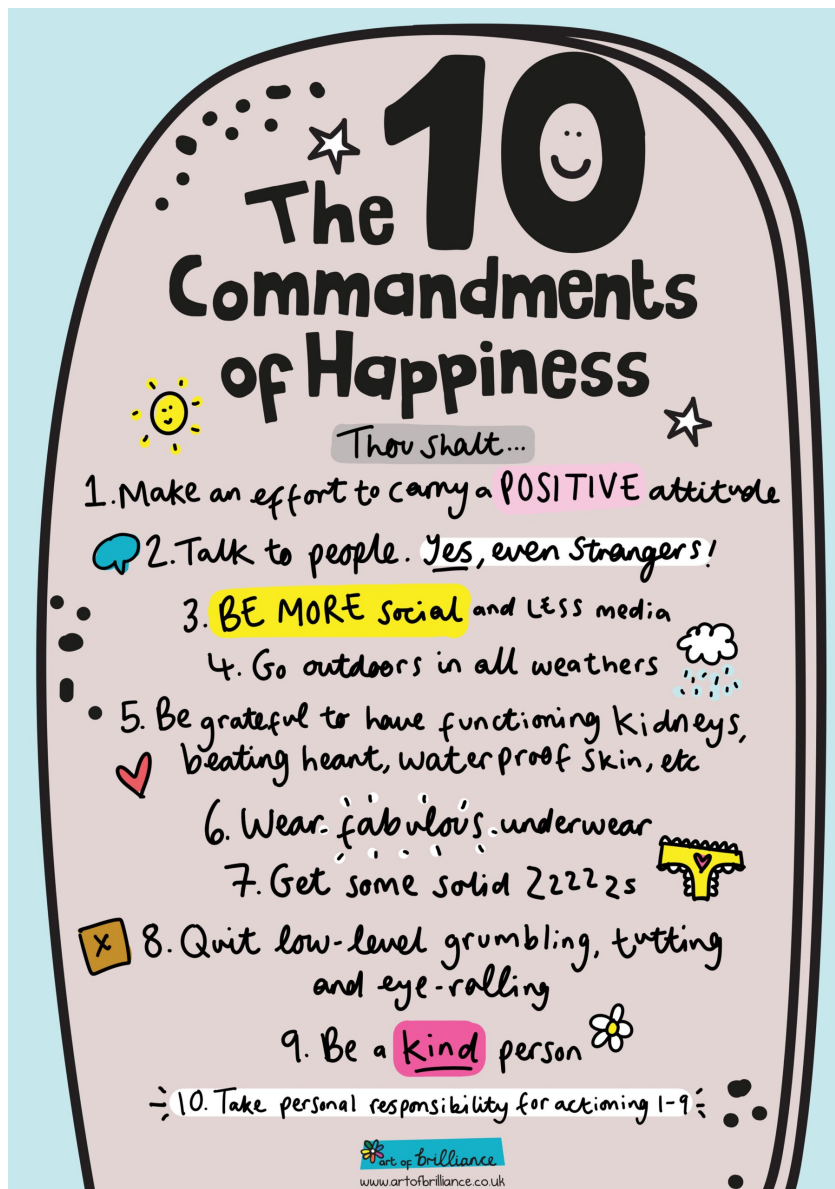 The 10
Commandments
of Happiness
Thou shalt...
1. Make an effort to carry a POSITIVE attitude
2. Talk to people. Yes, even strangers!
3. BE MORE social and LESS media
4. Go outdoors in all weathers
5. Be grateful to have functioning kidneys,
beating heart, waterproof skin, etc
6. Wear fabulous underwear
7. Get some solid ZZZZZs
x
8. Quit low-level grumbling, tutting
and eye-rolling
9. Be a kind person
10. Take personal responsibility for actioning 1-9
art of brilliance
www.artofbrilliance.co.uk